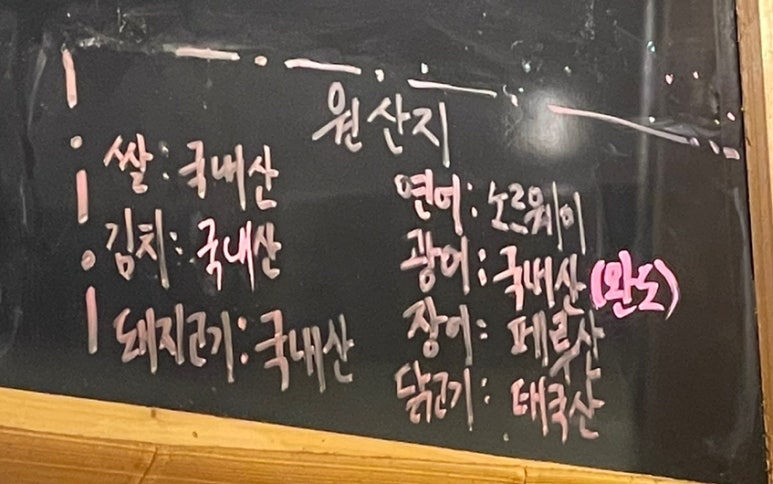 원산지
쌀: 국내산
김치: 국내산
돼지고기: 국내산
연어: 노르웨이
광어: 국내산 (완도)
장어: 페루산
닭고기: 태국산